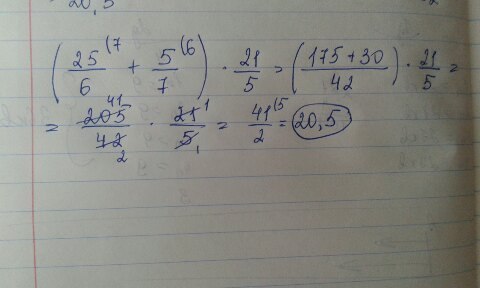 20,5
(25/6 (7 + 5/7 (6) · 21/5 = (175+30/42) · 21/5 =
= 205 41/42 2 · 21 1/5 1 = 41/2 (5 = 20,5